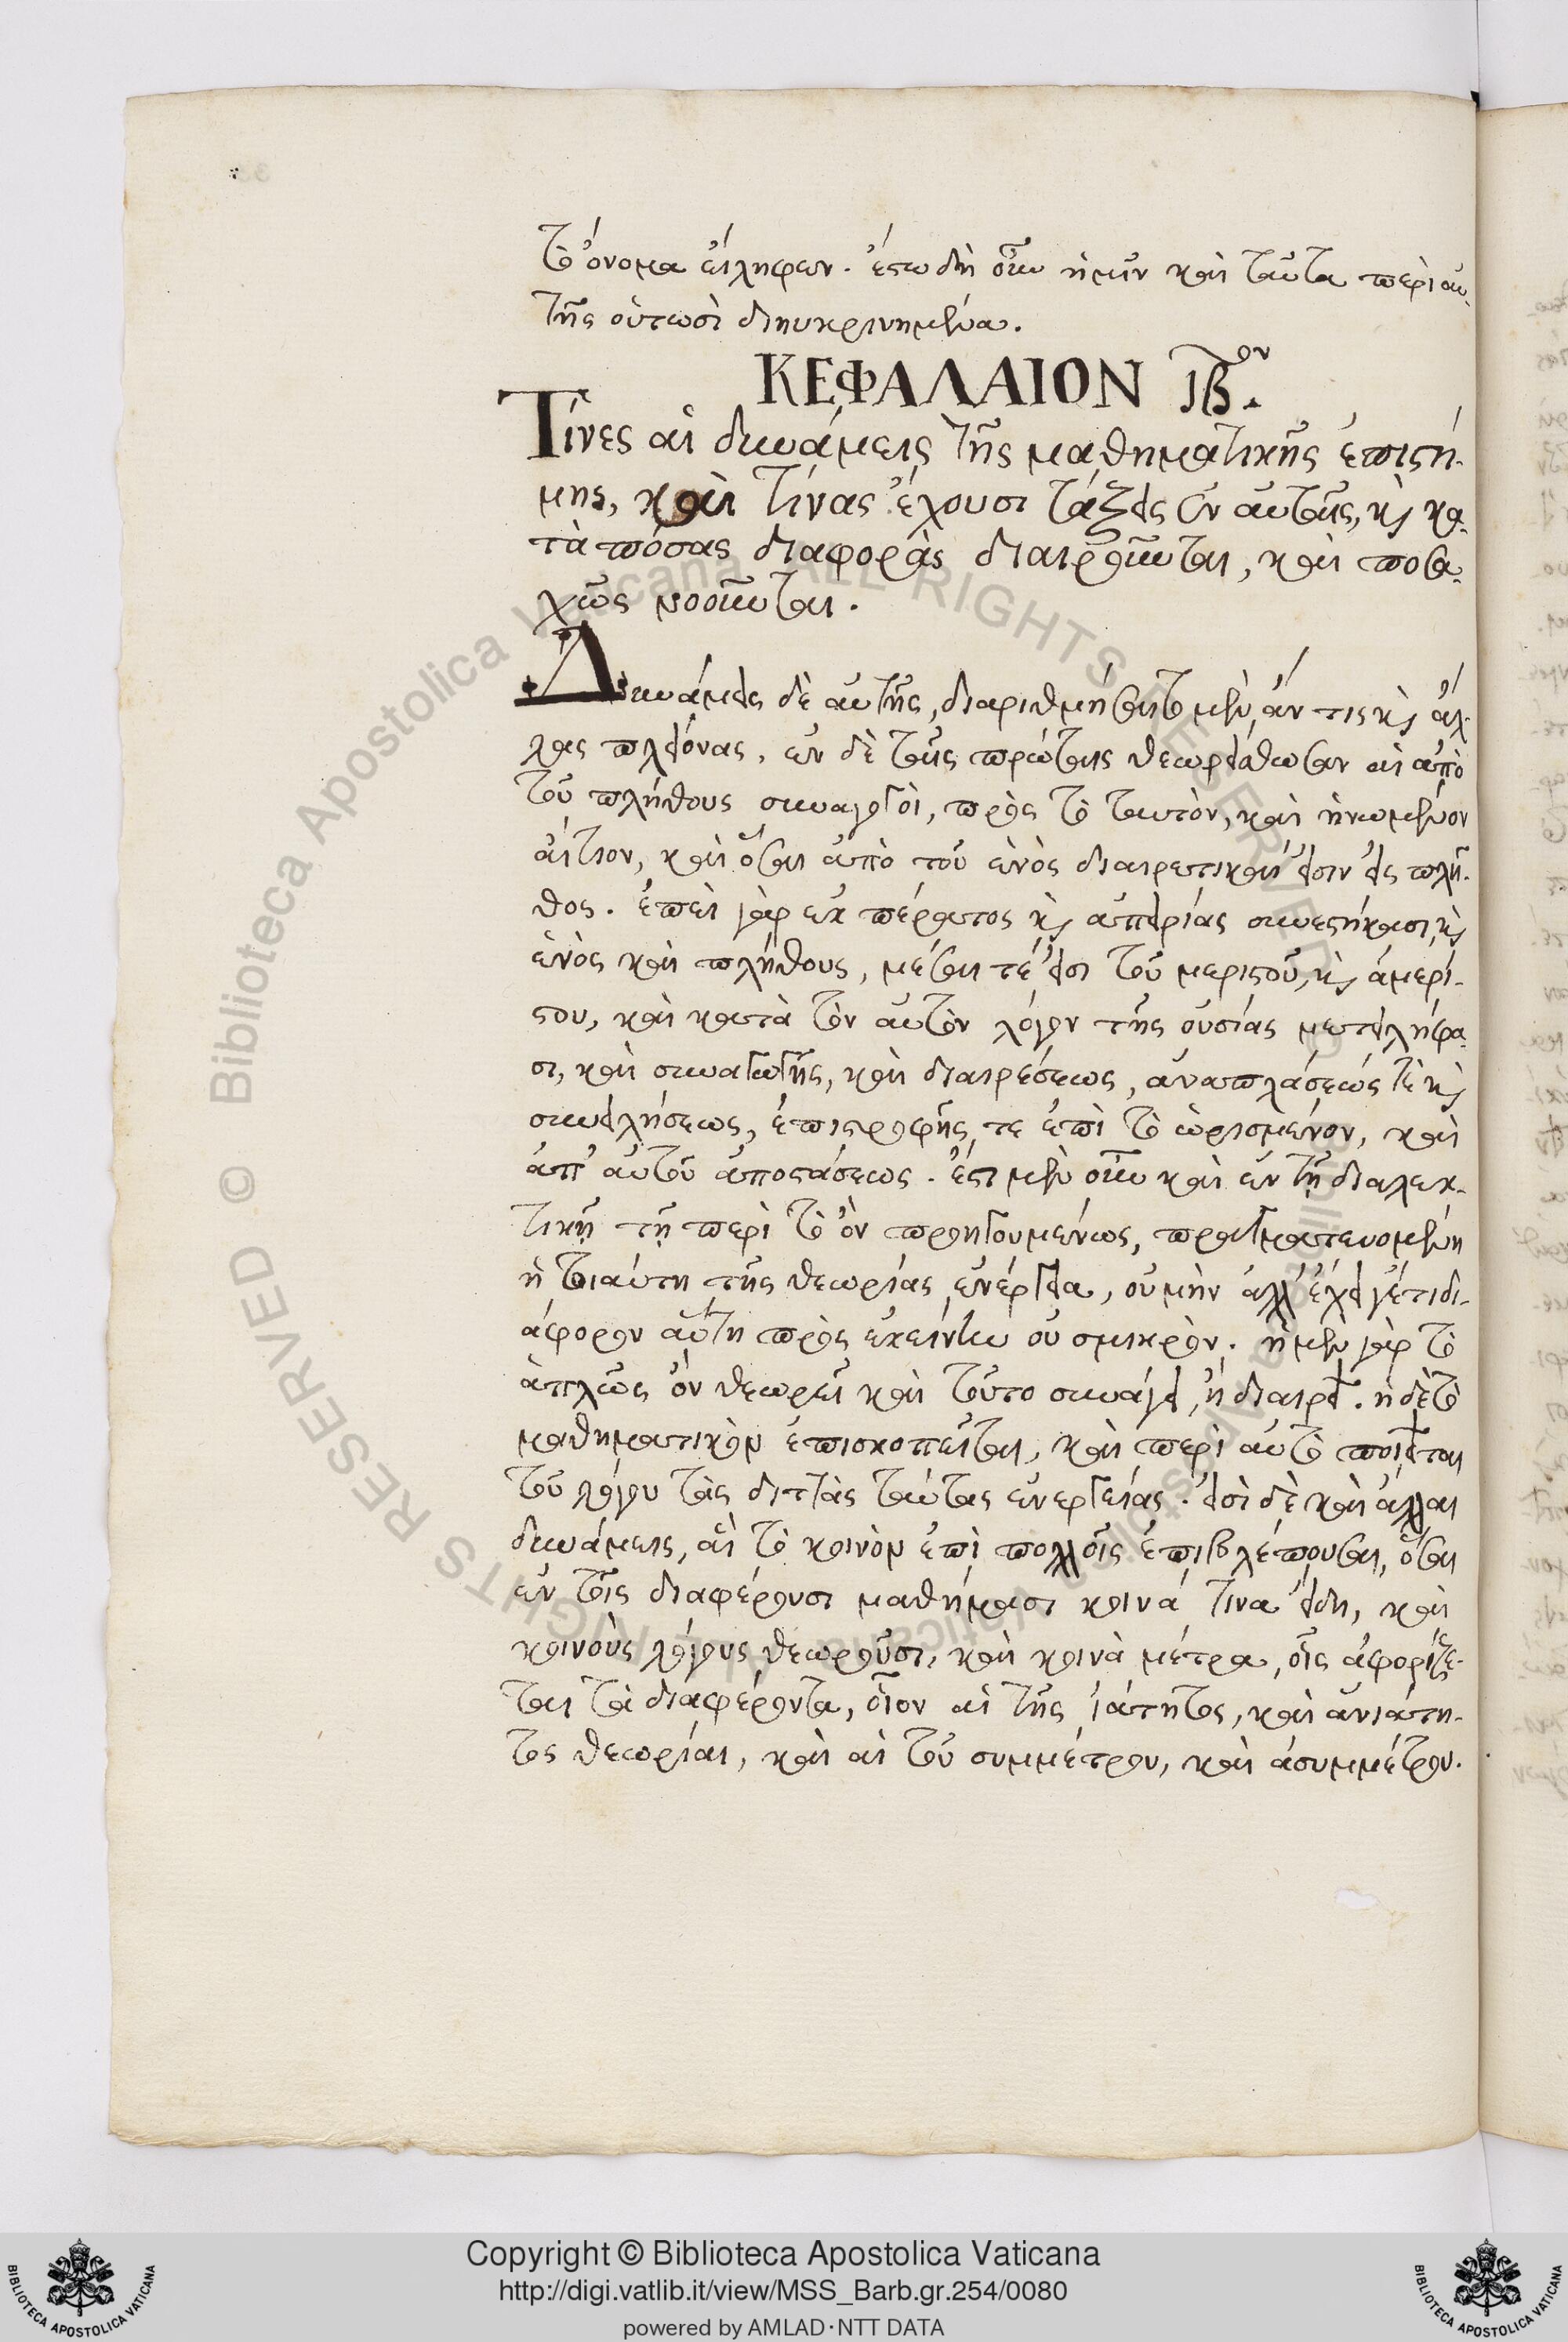 τὸ ὄνομα εἴληφεν. ἔστω δὴ οὖν ἡμῖν καὶ ταῦτα περὶ αὐ-
τῆς οὑτωσὶ διηυκρινημένα.
ΚΕΦΑΛΑΙΟΝ ιβον.
Τίνες αἱ δυνάμεις τῆς μαθηματικῆς ἐπιστή-
μης, καὶ τίνας ἔχουσι τάξεις ἐν αὐταῖς, κὶ κα-
τὰ πόσας διαφορὰς διαιροῦνται, καὶ ποσα-
χῶς νοοῦνται.
Δυνάμεις δὲ αὐτῆς, διαριθμήσαιτο μὲν ἄν τις κὶ ἄλ-
λας πλείονας. ἐν δὲ ταῖς πρώταις θεωρείσθωσαν αἱ ἀπὸ
τοῦ πλήθους συναγωγοὶ, πρὸς τὸ ταυτὸν, καὶ ἡνωμένον
αἴτιον, καὶ ὅσαι ἀπὸ τοῦ ἑνὸς διαιρετικαὶ εἰσιν εἰς πλῆ-
θος. ἐπεὶ γὰρ ἐκ πέρατος κὶ ἀπειρίας συνεστήκασι, κὶ
ἑνὸς καὶ πλήθους, μέσαι τέ εἰσι τοῦ μεριστοῦ, κὶ ἀμερί-
στου, καὶ κατὰ τὸν αὐτὸν λόγον τῆς οὐσίας μετειλήφα-
σι, καὶ συναγωγῆς, καὶ διαιρέσεως, ἀναπλάσεώς τὲ κὶ
συνειλήσεως, ἐπιστροφῆς τε ἐπὶ τὸ ὡρισμένον, καὶ
ἀπ' αὐτοῦ ἀποστάσεως. ἔστι μὲν οὖν καὶ ἐν τῇ διαλεκ-
τικῇ τῇ περὶ τὸ ὂν προηγουμένως, πραγματευομένη
ἡ τοιαύτη τῆς θεωρίας ἐνέργεια, οὐ μὴν ἀλλ' ἔχει γέ τι δι-
άφορον αὕτη πρὸς ἐκείνην οὐ σμικρὸν. ἡ μὲν γὰρ τὸ
ἁπλῶς ὂν θεωρεῖ καὶ τοῦτο συνάγει, ἢ διαιρεῖ. ἡ δὲ τὸ
μαθηματικὸν ἐπισκοπεῖται, καὶ περὶ αὐτὸ ποιεῖται
τοῦ λόγου τὰς διττὰς ταύτας ἐνεργείας. εἰσὶ δὲ καὶ ἄλλαι
δυνάμεις, αἳ τὸ κοινὸν ἐπὶ πολλοῖς ἐπιβλέπουσαι, ὅσαι
ἐν τοῖς διαφέρουσι μαθήμασι κοινά τινα εἴδη, καὶ
κοινοὺς λόγους θεωροῦσι, καὶ κοινὰ μέτρα, οἷς ἀφορίζε-
ται τὰ διαφέροντα, οἷον αἱ τῆς ἰσότητος, καὶ ἀνισότη-
τος θεωρίαι, καὶ αἱ τοῦ συμμέτρου, καὶ ἀσυμμέτρου.
Copyright © Biblioteca Apostolica Vaticana
http://digi.vatlib.it/view/MSS_Barb.gr.254/0080
powered by AMLAD·NTT DATA